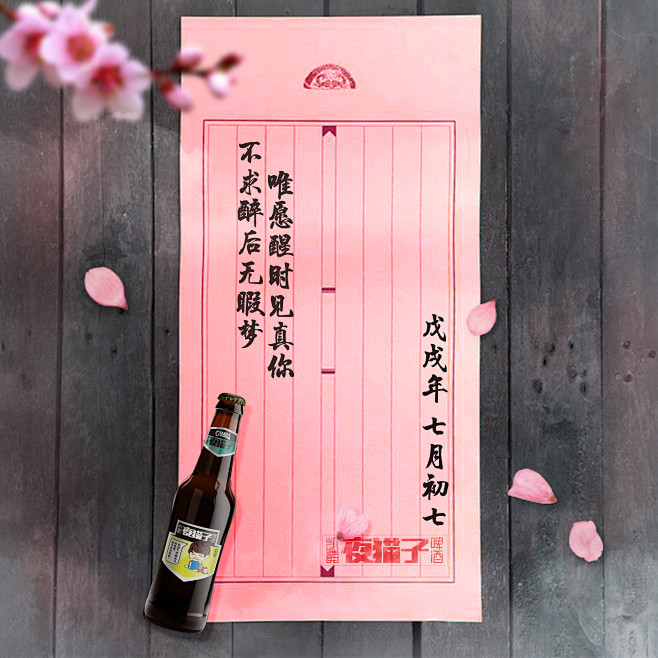 不求醉后无暇梦
唯愿醒时见真你
戊戌年 七月初七
凯爵
夜猫子
啤酒
夜猫子